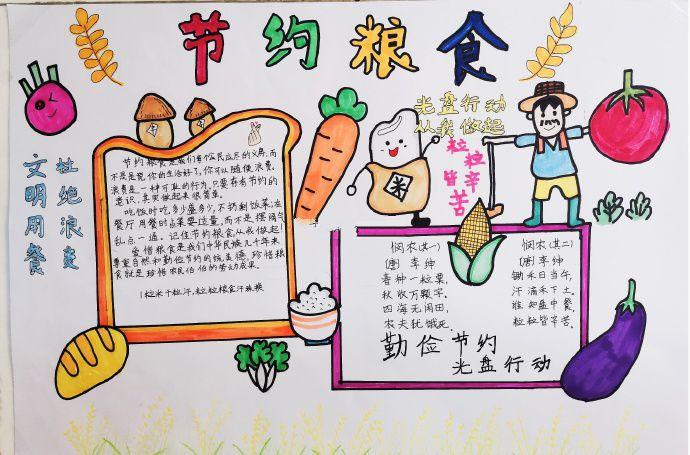 节约粮食
光盘行动
从我做起
粒粒皆辛苦
杜绝浪费
文明用餐
节约粮食是我们每个公民应尽的义务,而
不是是说你的生活好了,你可以随便浪费。
浪费是一种可耻的行为,只要存有节约的
意识,其实做起来很简单。
吃饭时吃多少盛多少,不扔剩饭菜,在
餐厅用餐时点菜要适量,而不是摆阔气
乱点一通。记住节约粮食从我做起!
爱惜粮食是我们中华民族几十年来
尊重自然和勤俭节约的优美德,珍惜粮
食就是珍惜农民伯伯的劳动成果。
1粒米千粒汗,粒粒粮食汗珠换
米
悯农(其一)
(唐)李绅
春种一粒粟,
秋收万颗子。
四海无闲田,
农夫犹饿死。
悯农(其二)
(唐)李绅
锄禾日当午,
汗滴禾下土。
谁知盘中餐,
粒粒皆辛苦。
勤俭节约
光盘行动